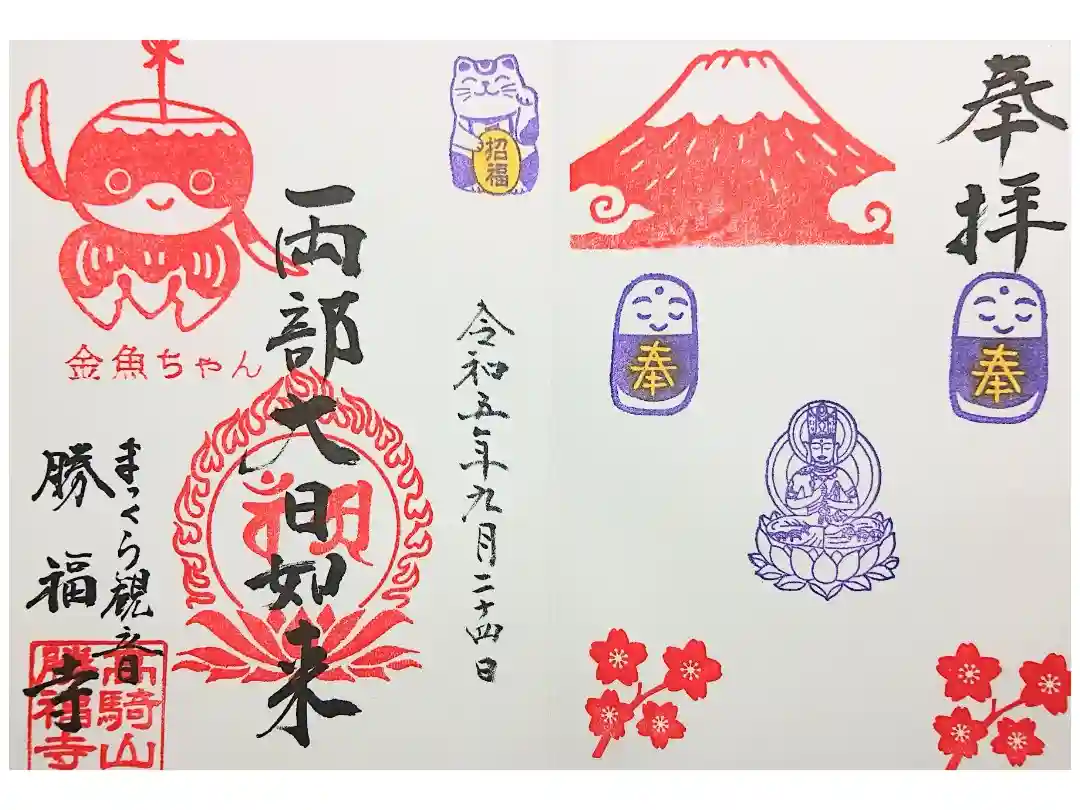 奉拝
奉
奉
招福
令和五年九月二十四日
両部大日如来
金魚ちゃん
まっくら観音
勝福寺
高騎山
勝福寺